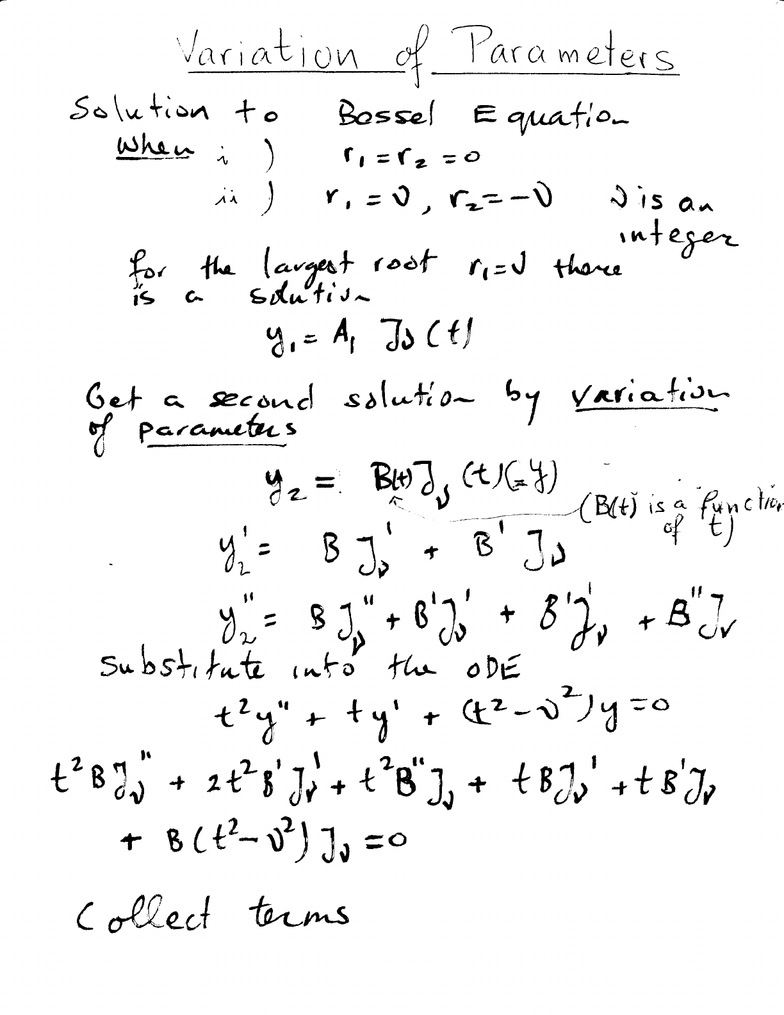 Variation of Parameters
Solution to Bessel Equation
when i) r₁ = r₂ = 0
ii) r₁ = ν, r₂ = -ν ν is an
integer
for the largest root r₁ = ν there
is a solution
y₁ = A₁ Jν (t)
Get a second solution by variation
of parameters
y₂ = B(t) Jν (t) (= y)
(B(t) is a function
of t)
y₂' = B Jν' + B' Jν
y₂'' = B Jν'' + B' Jν' + B' Jν' + B'' Jν
Substitute into the ODE
t² y'' + t y' + (t² - ν²) y = 0
t² B Jν'' + 2t² B' Jν' + t² B'' Jν + t B Jν' + t B' Jν
+ B (t² - ν²) Jν = 0
Collect terms